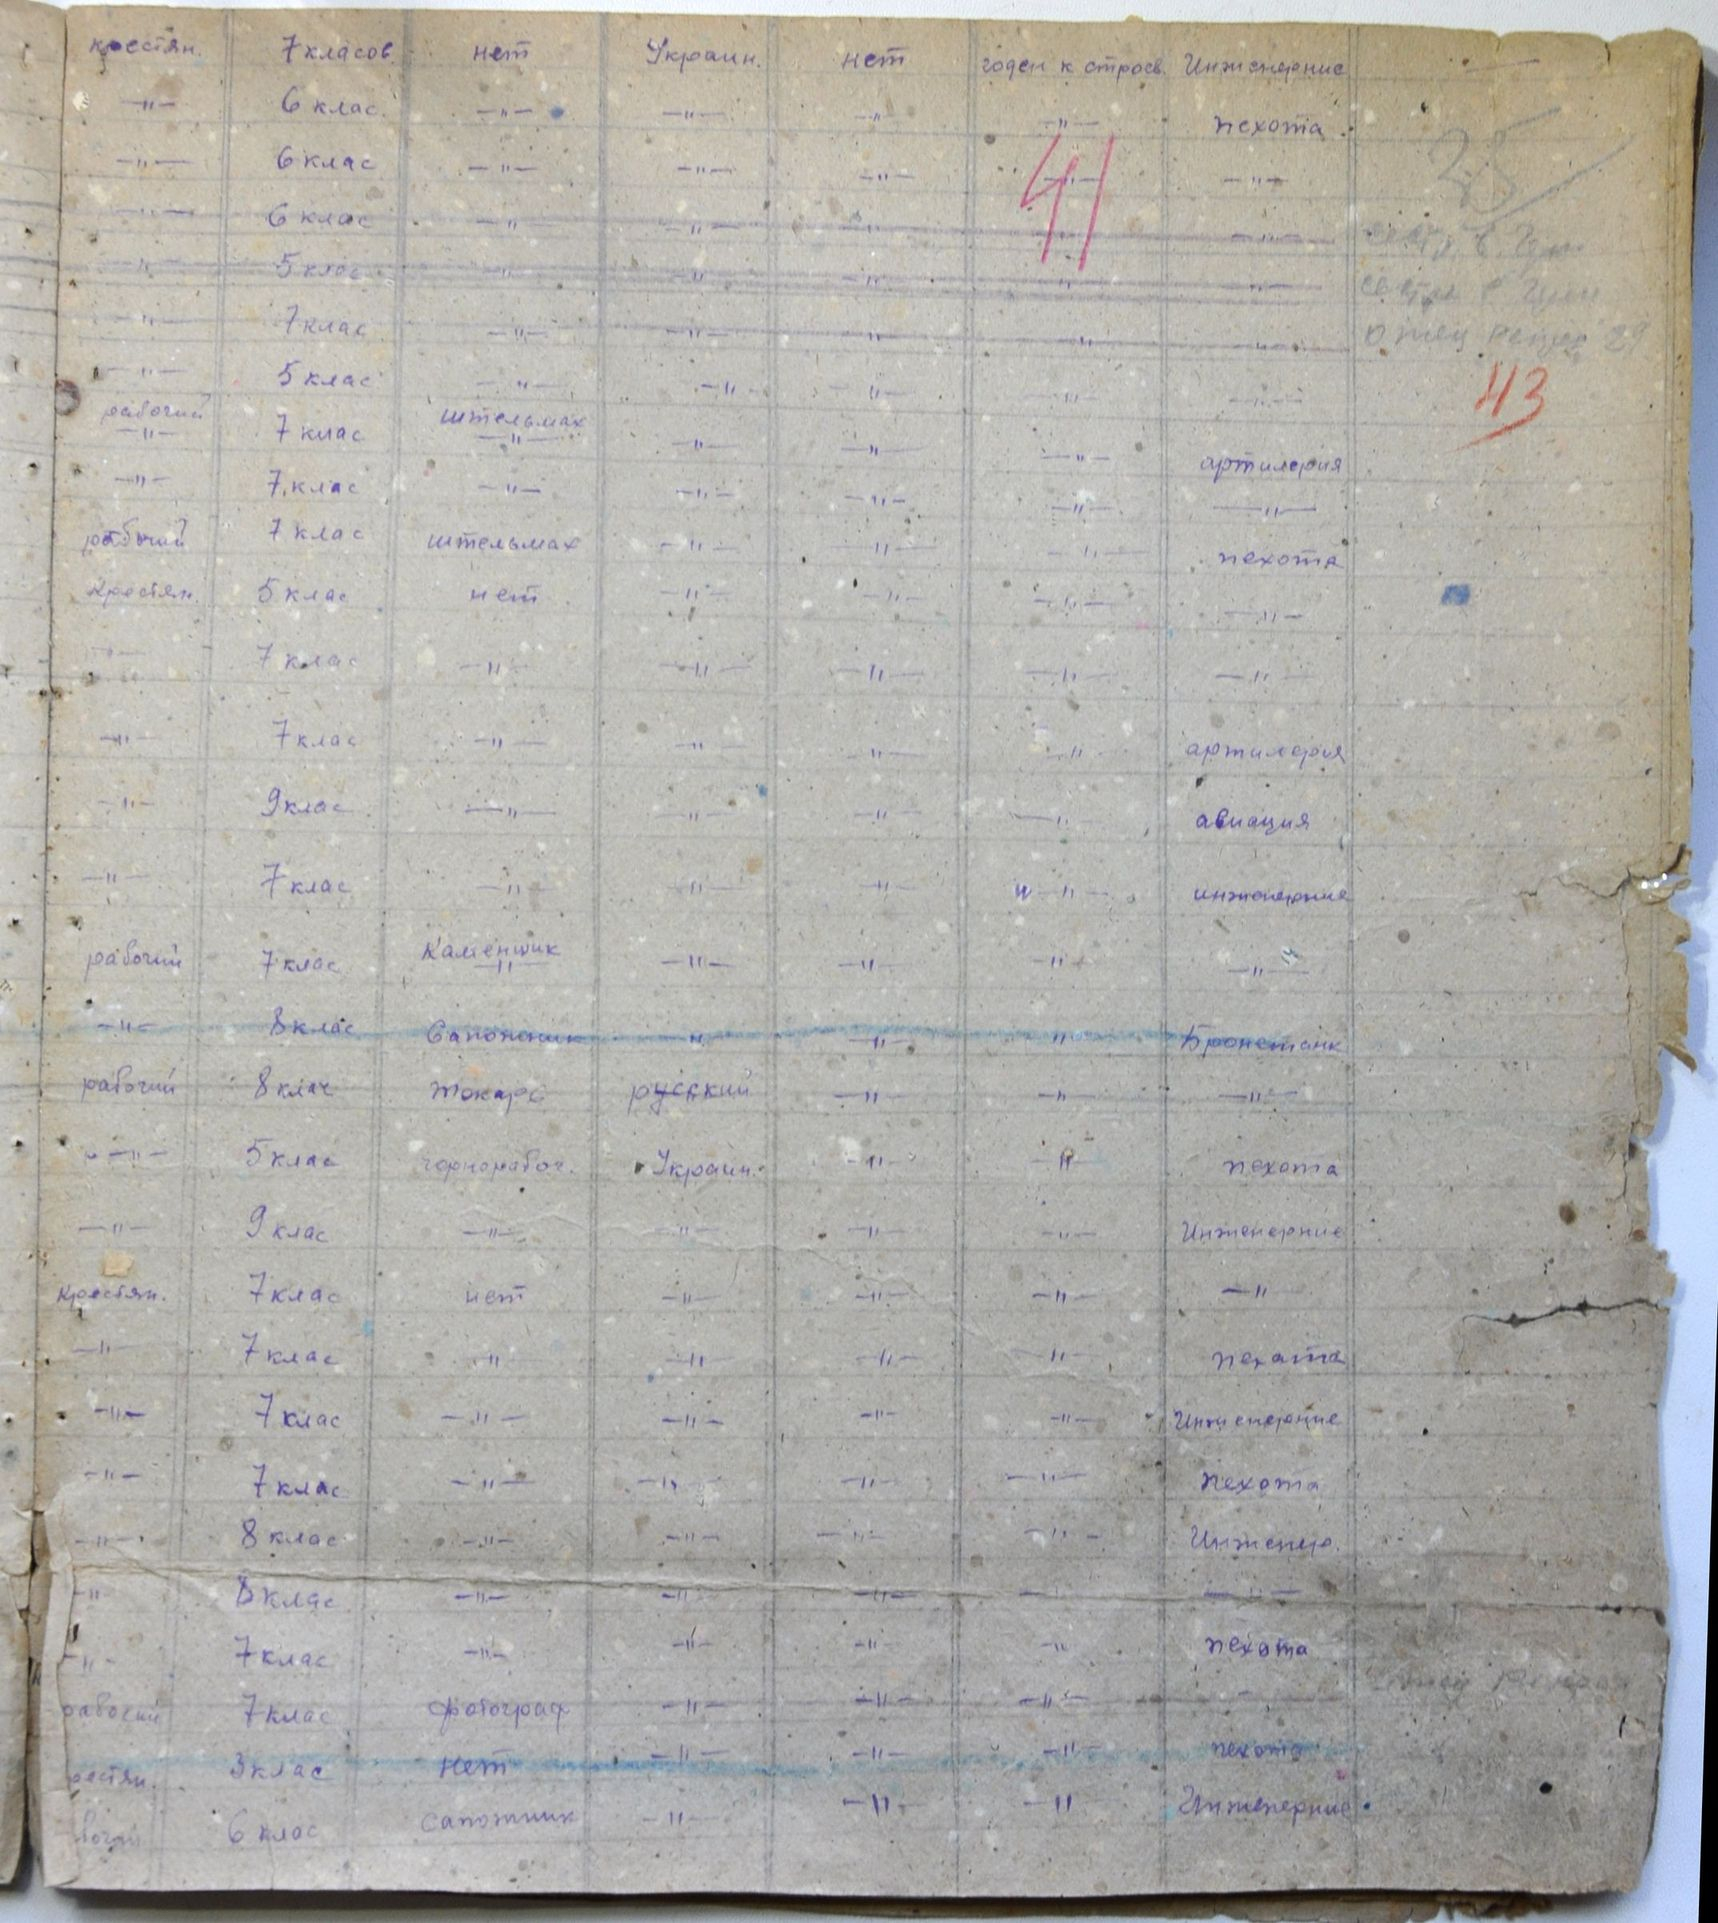 крестян. 7 класов. нет Украин. нет годен к строев. Инженерние
—"— 6 клас. —"— —"— —"— —"— пехота.
—"— 6 клас —"— —"— —"— —"— —"—
41
25
—"— 6 клас —"— —"— —"— —"— —"—
—"— 5 клас —"— —"— —"— —"— —"—
—"— 7 клас —"— —"— —"— —"— —"—
—"— 5 клас —"— —"— —"— —"— —"—
43
рабочий штельмах
—"— 7 клас —"— —"— —"— —"— артилерия
—"— 7 клас —"— —"— —"— —"— —"—
рабочий 7 клас штельмах —"— —"— —"— пехота
Крестян. 5 клас нет —"— —"— —"— —"—
—"— 7 клас —"— —"— —"— —"— —"—
—"— 7 клас —"— —"— —"— —"— артилерия
—"— 9 клас —"— —"— —"— —"— авиация
—"— 7 клас —"— —"— —"— —"— инженерние
рабочий 7 клас Каменщик —"— —"— —"— —"—
—"— 8 клас Сапожник —"— —"— —"— Бронетанк
рабочий 8 клас токарь русский —"— —"— —"—
—"— 5 клас чорнорабоч. Украин. —"— —"— пехота
—"— 9 клас —"— —"— —"— —"— Инженерние
Крестян. 7 клас нет —"— —"— —"— —"—
—"— 7 клас —"— —"— —"— —"— пехота
—"— 7 клас —"— —"— —"— —"— Инженерние
—"— 7 клас —"— —"— —"— —"— пехота
—"— 8 клас —"— —"— —"— —"— Инженер.
—"— 8 клас —"— —"— —"— —"— —"—
—"— 7 клас —"— —"— —"— —"— пехота
рабочий 7 клас фотограф —"— —"— —"— —"—
рестян. 3 клас нет —"— —"— —"— пехота
бочий 6 клас сапожник —"— —"— —"— Инженерние